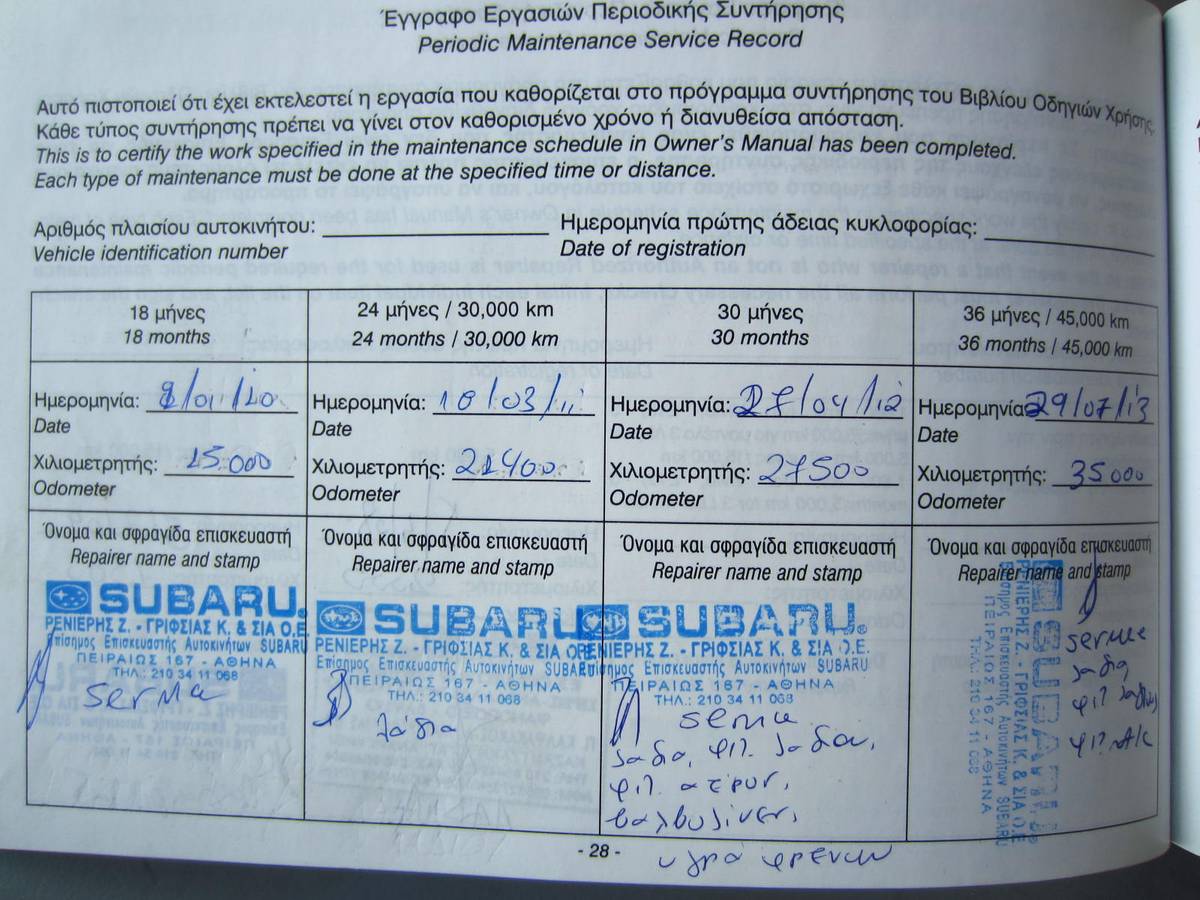 Έγγραφο Εργασιών Περιοδικής Συντήρησης
Periodic Maintenance Service Record
Αυτό πιστοποιεί ότι έχει εκτελεστεί η εργασία που καθορίζεται στο πρόγραμμα συντήρησης του Βιβλίου Οδηγιών Χρήσης.
Κάθε τύπος συντήρησης πρέπει να γίνει στον καθορισμένο χρόνο ή διανυθείσα απόσταση.
This is to certify the work specified in the maintenance schedule in Owner's Manual has been completed.
Each type of maintenance must be done at the specified time or distance.
Αριθμός πλαισίου αυτοκινήτου:
Vehicle identification number
Ημερομηνία τρώτης άδειας κυκλοφορίας:
Date of registration
18 μήνες
18 months
Ημερομηνία: /01/10
Date
Χιλιομετρητής: 15.000
Odometer
Όνομα και σφραγίδα επισκευαστή
Repairer name and stamp
SUBARU
ΡΕΝΙΕΡΗΣ Ζ. - ΓΡΙΦΣΙΑΣ Κ. & ΣΙΑ Ο.Ε.
Επίσημος Επισκευαστής Αυτοκινήτων SUBARU
ΠΕΙΡΑΙΩΣ 167 - ΑΘΗΝΑ
ΤΗΛ.: 210 34 11 068
24 μήνες / 30,000 km
24 months / 30,000 km
Ημερομηνία: 18/03/11
Date
Χιλιομετρητής: 21400
Odometer
Όνομα και σφραγίδα επισκευαστή
Repairer name and stamp
SUBARU
ΡΕΝΙΕΡΗΣ Ζ. - ΓΡΙΦΣΙΑΣ Κ. & ΣΙΑ Ο.Ε.
Επίσημος Επισκευαστής Αυτοκινήτων SUBARU
ΠΕΙΡΑΙΩΣ 167 - ΑΘΗΝΑ
ΤΗΛ.: 210 34 11 068
λάδια
30 μήνες
30 months
Ημερομηνία: 27/04/12
Date
Χιλιομετρητής: 27500
Odometer
Όνομα και σφραγίδα επισκευαστή
Repairer name and stamp
SUBARU
ΡΕΝΙΕΡΗΣ Ζ. - ΓΡΙΦΣΙΑΣ Κ. & ΣΙΑ Ο.Ε.
Επίσημος Επισκευαστής Αυτοκινήτων SUBARU
ΠΕΙΡΑΙΩΣ 167 - ΑΘΗΝΑ
ΤΗΛ.: 210 34 11 068
service
λαδια, φιλ. λαδιου,
φιλ. αερον,
βαλβολινες,
υγρα φρενων
36 μήνες / 45,000 km
36 months / 45,000 km
Ημερομηνία 29/07/13
Date
Χιλιομετρητής: 35000
Odometer
Όνομα και σφραγίδα επισκευαστή
Repairer name and stamp
SUBARU
ΡΕΝΙΕΡΗΣ Ζ. - ΓΡΙΦΣΙΑΣ Κ. & ΣΙΑ Ο.Ε.
Επίσημος Επισκευαστής Αυτοκινήτων SUBARU
ΠΕΙΡΑΙΩΣ 167 - ΑΘΗΝΑ
ΤΗΛ.: 210 34 11 068
service
λαδια
φιλ λαδιου
φιλ A/C
- 28 -